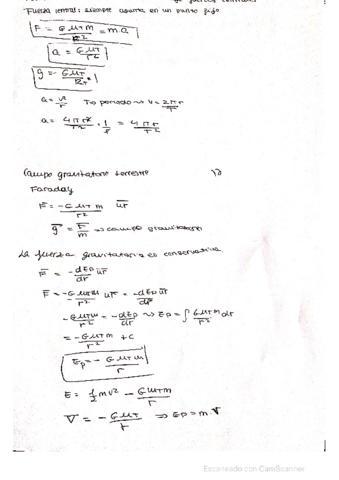 Fuerza central: siempre apunta en un punto fijo
F = G M_T m / r² = m a
a = G M_T / r²
g = - G M_T / R_T²
a = v² / r   T → periodo → v = 2πr / T
a = 4πr² / T² · 1/r = 4πr / T²
Campo gravitatorio terrestre
Faraday
F = -G M_T m / r² ur
g = F / m => campo gravitatorio
La fuerza gravitatoria es conservativa
F = -dEp / dr ur
F = -G M_T m / r² ur = -dEp / dr ur
-G M_T m / r² = -dEp / dr → Ep = ∫ G M_T m / r² dr
= -G M_T m / r + C
Ep = - G M_T m / r
E = 1/2 m v² - G M_T m / r
V = - G M_T / r => Ep = m V
Escaneado con CamScanner